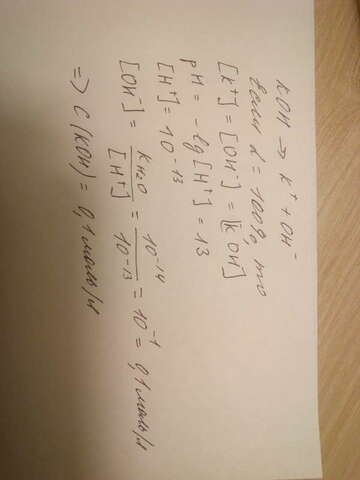 KOH → K⁺ + OH⁻
Если α = 100%, то
[K⁺] = [OH⁻] = [KOH]
pH = -lg[H⁺] = 13
[H⁺] = 10⁻¹³
[OH⁻] = K H₂O / [H⁺] = 10⁻¹⁴ / 10⁻¹³ = 10⁻¹ = 0,1 моль/л
=> C(KOH) = 0,1 моль/л